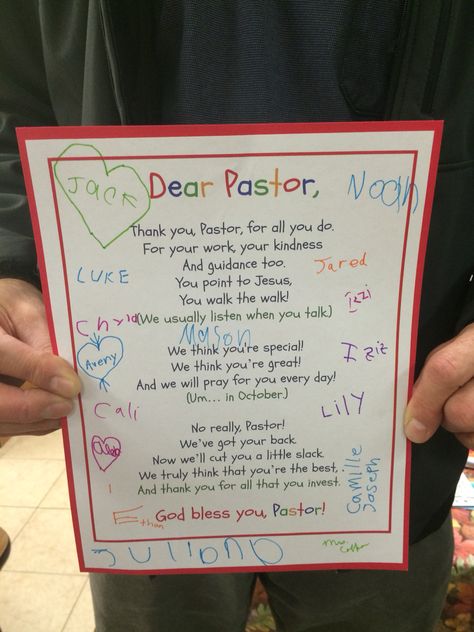 Jack
Dear Pastor,
Noah
Thank you, Pastor, for all you do.
For your work, your kindness
And guidance too.
LUKE
Jared
You point to Jesus,
You walk the walk!
izzi
(We usually listen when you talk.)
Mason
We think you're special!
Avery
We think you're great!
Iziz
And we will pray for you every day!
(Um... in October.)
Cali
LILY
No really, Pastor!
We've got your back.
Now we'll cut you a little slack.
We truly think that you're the best,
And thank you for all that you invest.
Camille
Joseph
Ethan
God bless you, Pastor!
Juliana